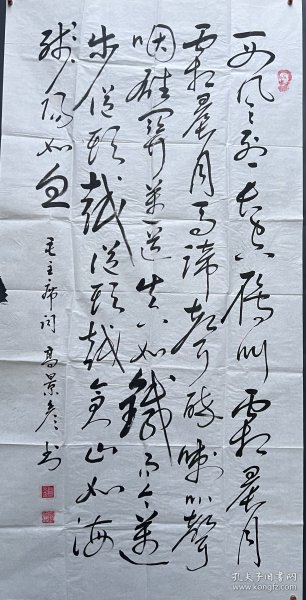 西风烈长空雁叫霜晨月
霜晨月马蹄声碎喇叭声
咽雄关漫道真如铁而今迈
步从头越从头越苍山如海
残阳如血
毛主席词 高景彦书
孔夫子旧书网
www.kongfz.com